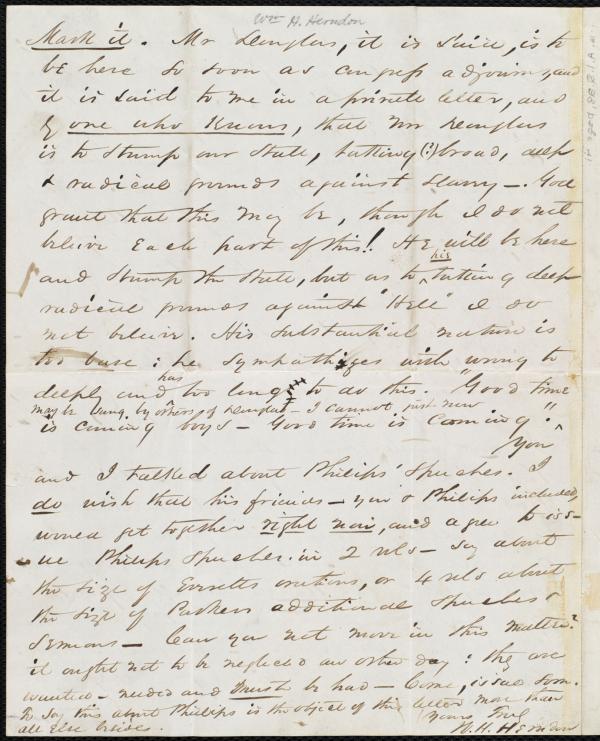 Wm H. Herndon
Mark it. Mr Douglas, it is said, is to
be here so soon as congress adjourns, and
it is said to me in a private letter, and
by one who knows, that Mr Douglas
is to stump our State, tatking (?) broad, deep
& radical grounds against slavery —. God
grant that this may be, though I do not
believe each part of this! He will be here
and stump the State, but as to his tatking deep
radical grounds against "Hell" I do
not believe. His substantial nature is
too base: he sympathizes with wrong to
deeply and has too long to do this. "Good time
may be sung by others, of Douglas — I cannot just now
is coming boys — Good time is coming."
You
and I talked about Philips' Speeches. I
do wish that his friends — you & Philips included,
would get together right now, and agree to iss-
ue Philips Speeches in 2 vols — say about
the size of Everetts orations, or 4 vols about
the size of Parkers additional Speeches &
Sermons — Can you not move in this matter?
it ought not to be neglected an other day: they are
wanted — needed and must be had — Come, issue soon.
To say this about Phillips is the object of this letter more than
all else besides.
Yours Truly
W. H. Herndon